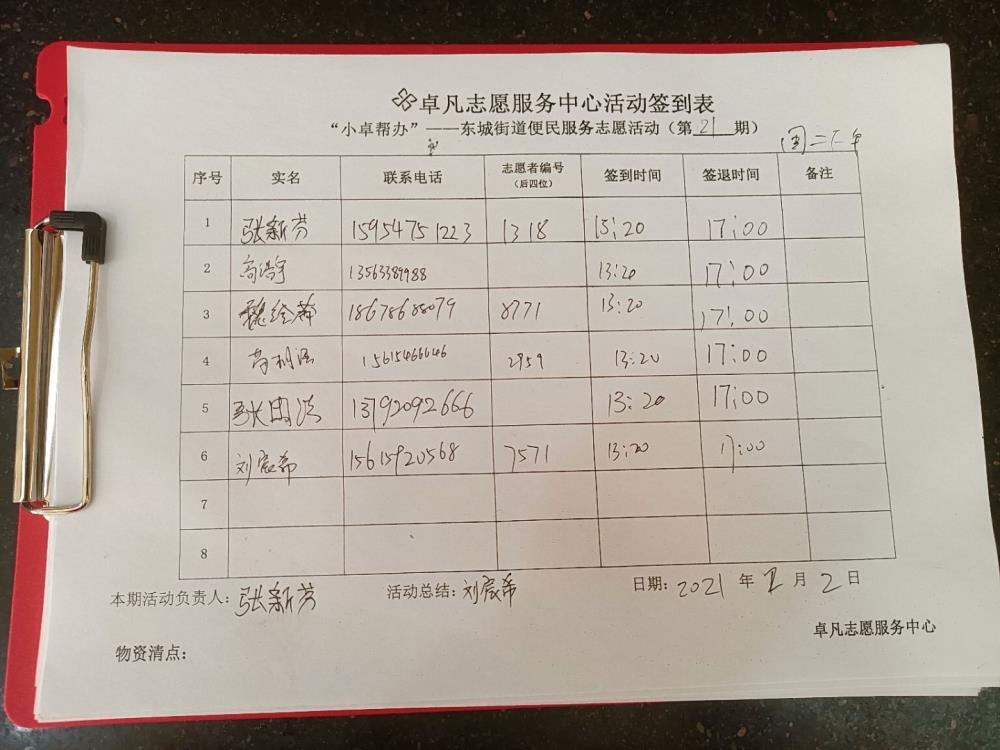 卓凡志愿服务中心活动签到表
“小卓帮办”——东城街道便民服务志愿活动（第21期）
周二下午
序号 实名 联系电话 志愿者编号（后四位） 签到时间 签退时间 备注
1 张新芬 15954751223 1318 13:20 17:00
2 13563389988 13:20 17:00
3 18678688079 8771 13:20 17:00
4 15615466646 2959 13:20 17:00
5 13792092666 13:20 17:00
6 刘宸希 15615920568 7571 13:20 17:00
7
8
本期活动负责人：张新芬 活动总结：刘宸希 日期：2021年2月2日
卓凡志愿服务中心
物资清点：